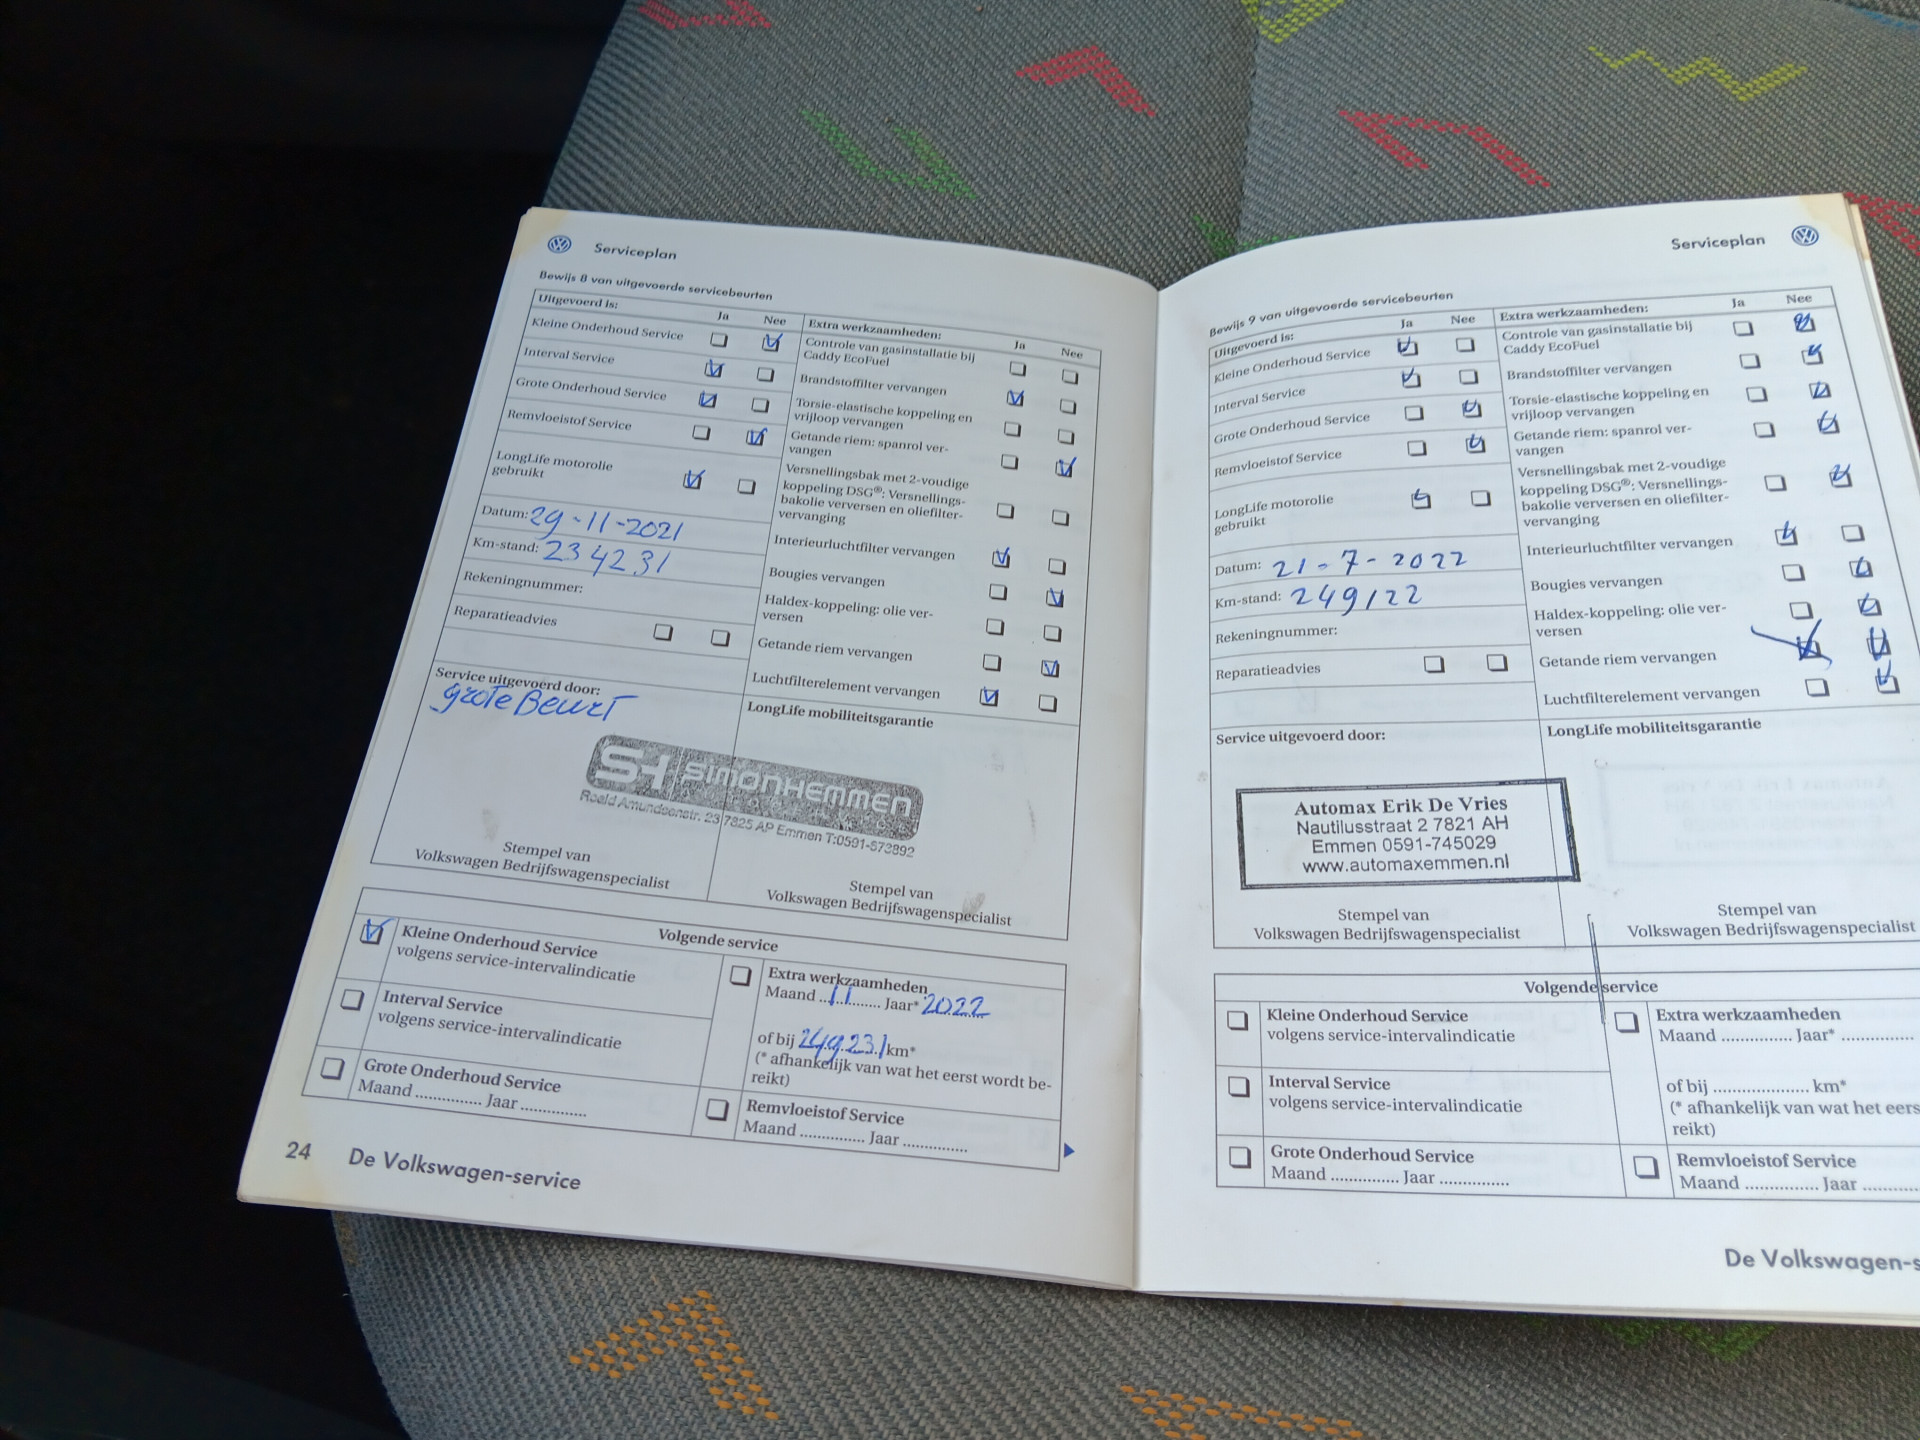 Serviceplan
Bewijs 8 van uitgevoerde servicebeurten
Uitgevoerd is:
Ja Nee
Kleine Onderhoud Service
Interval Service
Grote Onderhoud Service
Remvloeistof Service
LongLife motorolie
gebruikt
Datum: 29-11-2021
Km-stand: 234231
Rekeningnummer:
Reparatieadvies
Extra werkzaamheden:
Ja Nee
Controle van gasinstallatie bij
Caddy EcoFuel
Brandstoffilter vervangen
Torsie-elastische koppeling en
vrijloop vervangen
Getande riem: spanrol ver-
vangen
Versnellingsbak met 2-voudige
koppeling DSG®: Versnellings-
bakolie verversen en oliefilter-
vervanging
Interieurluchtfilter vervangen
Bougies vervangen
Haldex-koppeling: olie ver-
versen
Getande riem vervangen
Luchtfilterelement vervangen
Service uitgevoerd door:
grote Beurt
LongLife mobiliteitsgarantie
SH SIMONHEMMEN
Roald Amundsenstr. 23 7825 AP Emmen T:0591-673892
Stempel van
Volkswagen Bedrijfswagenspecialist
Stempel van
Volkswagen Bedrijfswagenspecialist
Volgende service
Kleine Onderhoud Service
volgens service-intervalindicatie
Interval Service
volgens service-intervalindicatie
Grote Onderhoud Service
Maand ............... Jaar ...............
Extra werkzaamheden
Maand ..11........ Jaar* 2022
of bij 249.231 km*
(* afhankelijk van wat het eerst wordt be-
reikt)
Remvloeistof Service
Maand ............... Jaar ...............
24 De Volkswagen-service
Serviceplan
Bewijs 9 van uitgevoerde servicebeurten
Uitgevoerd is:
Ja Nee
Kleine Onderhoud Service
Interval Service
Grote Onderhoud Service
Remvloeistof Service
LongLife motorolie
gebruikt
Datum: 21-7-2022
Km-stand: 249122
Rekeningnummer:
Reparatieadvies
Extra werkzaamheden:
Ja Nee
Controle van gasinstallatie bij
Caddy EcoFuel
Brandstoffilter vervangen
Torsie-elastische koppeling en
vrijloop vervangen
Getande riem: spanrol ver-
vangen
Versnellingsbak met 2-voudige
koppeling DSG®: Versnellings-
bakolie verversen en oliefilter-
vervanging
Interieurluchtfilter vervangen
Bougies vervangen
Haldex-koppeling: olie ver-
versen
Getande riem vervangen
Luchtfilterelement vervangen
Service uitgevoerd door:
LongLife mobiliteitsgarantie
Automax Erik De Vries
Nautilusstraat 2 7821 AH
Emmen 0591-745029
www.automaxemmen.nl
Stempel van
Volkswagen Bedrijfswagenspecialist
Stempel van
Volkswagen Bedrijfswagenspecialist
Volgende service
Kleine Onderhoud Service
volgens service-intervalindicatie
Interval Service
volgens service-intervalindicatie
Grote Onderhoud Service
Maand ............... Jaar ...............
Extra werkzaamheden
Maand ............... Jaar* ...............
of bij .................... km*
(* afhankelijk van wat het eers
reikt)
Remvloeistof Service
Maand ............... Jaar ............
De Volkswagen-s